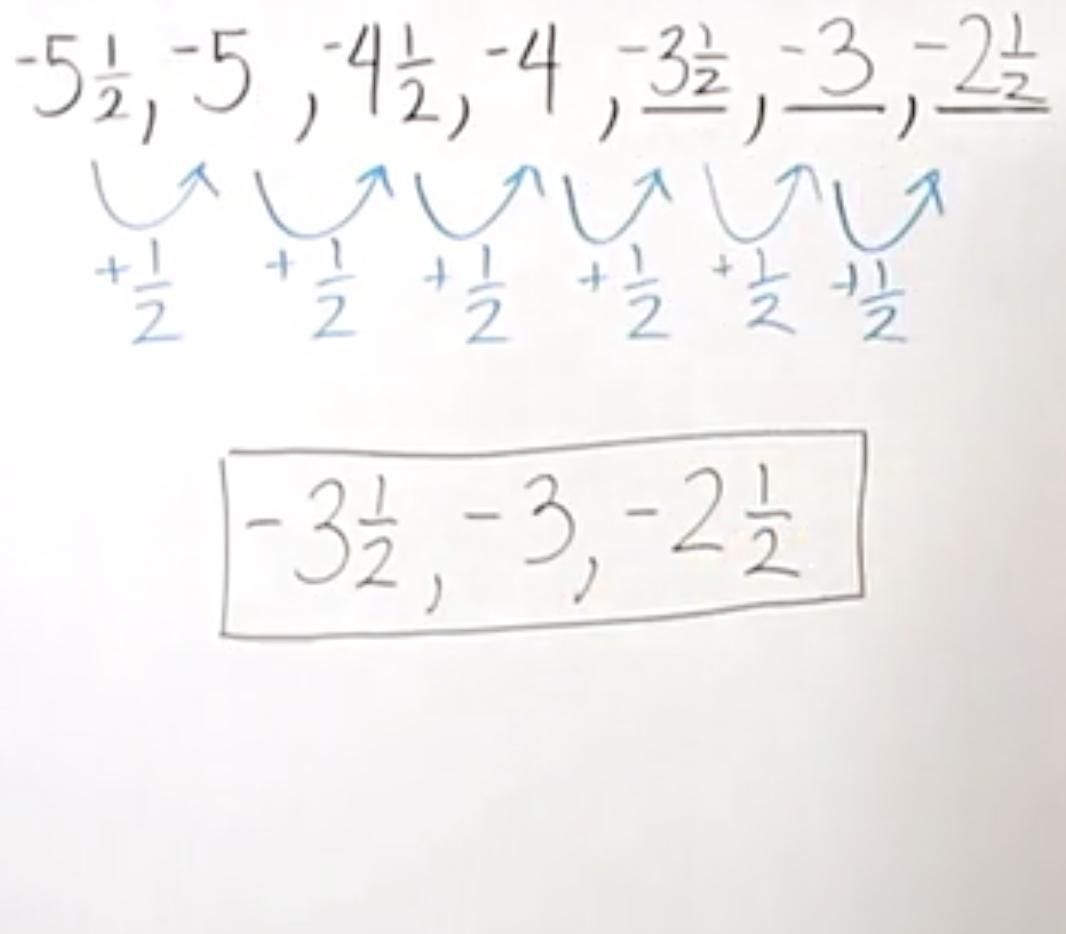 -5 1/2, -5, -4 1/2, -4, -3 1/2, -3, -2 1/2
+1/2 +1/2 +1/2 +1/2 +1/2 +1/2
-3 1/2, -3, -2 1/2